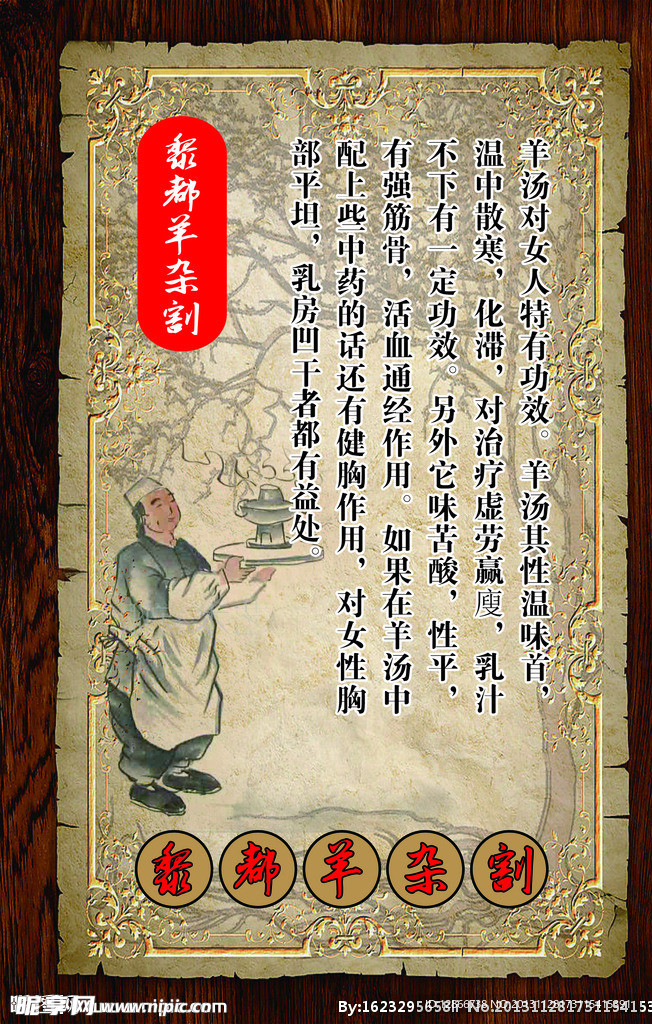 羊汤对女人特有功效。羊汤其性温味首，
温中散寒，化滞，对治疗虚劳赢廋，乳汁
不下有一定功效。另外它味苦酸，性平，
有强筋骨，活血通经作用。如果在羊汤中
配上些中药的话还有健胸作用，对女性胸
部平坦，乳房凹干者都有益处。
黎都羊杂割
黎都羊杂割
昵享网 www.nipic.com